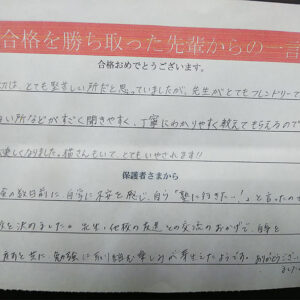 合格を勝ち取った先輩からの一言
合格おめでとうございます。
は、とても堅苦しい所だと思っていましたが、先生がとてもフレンドリーで
い所などがすごく聞きやすく、丁寧にわかりやすく教えてもらえるので
楽しくなりました。猫さんもいて、とてもいやされます!!
保護者さまから
の数日前に、自学に不安を感じ、自ら「塾に行きたい!」と言ったの
を決めました。先生・他校の友達との交流のおかげで、自学を
と共に勉強に取り組む楽しみが芽生えたようです。ありがとうござい
ました